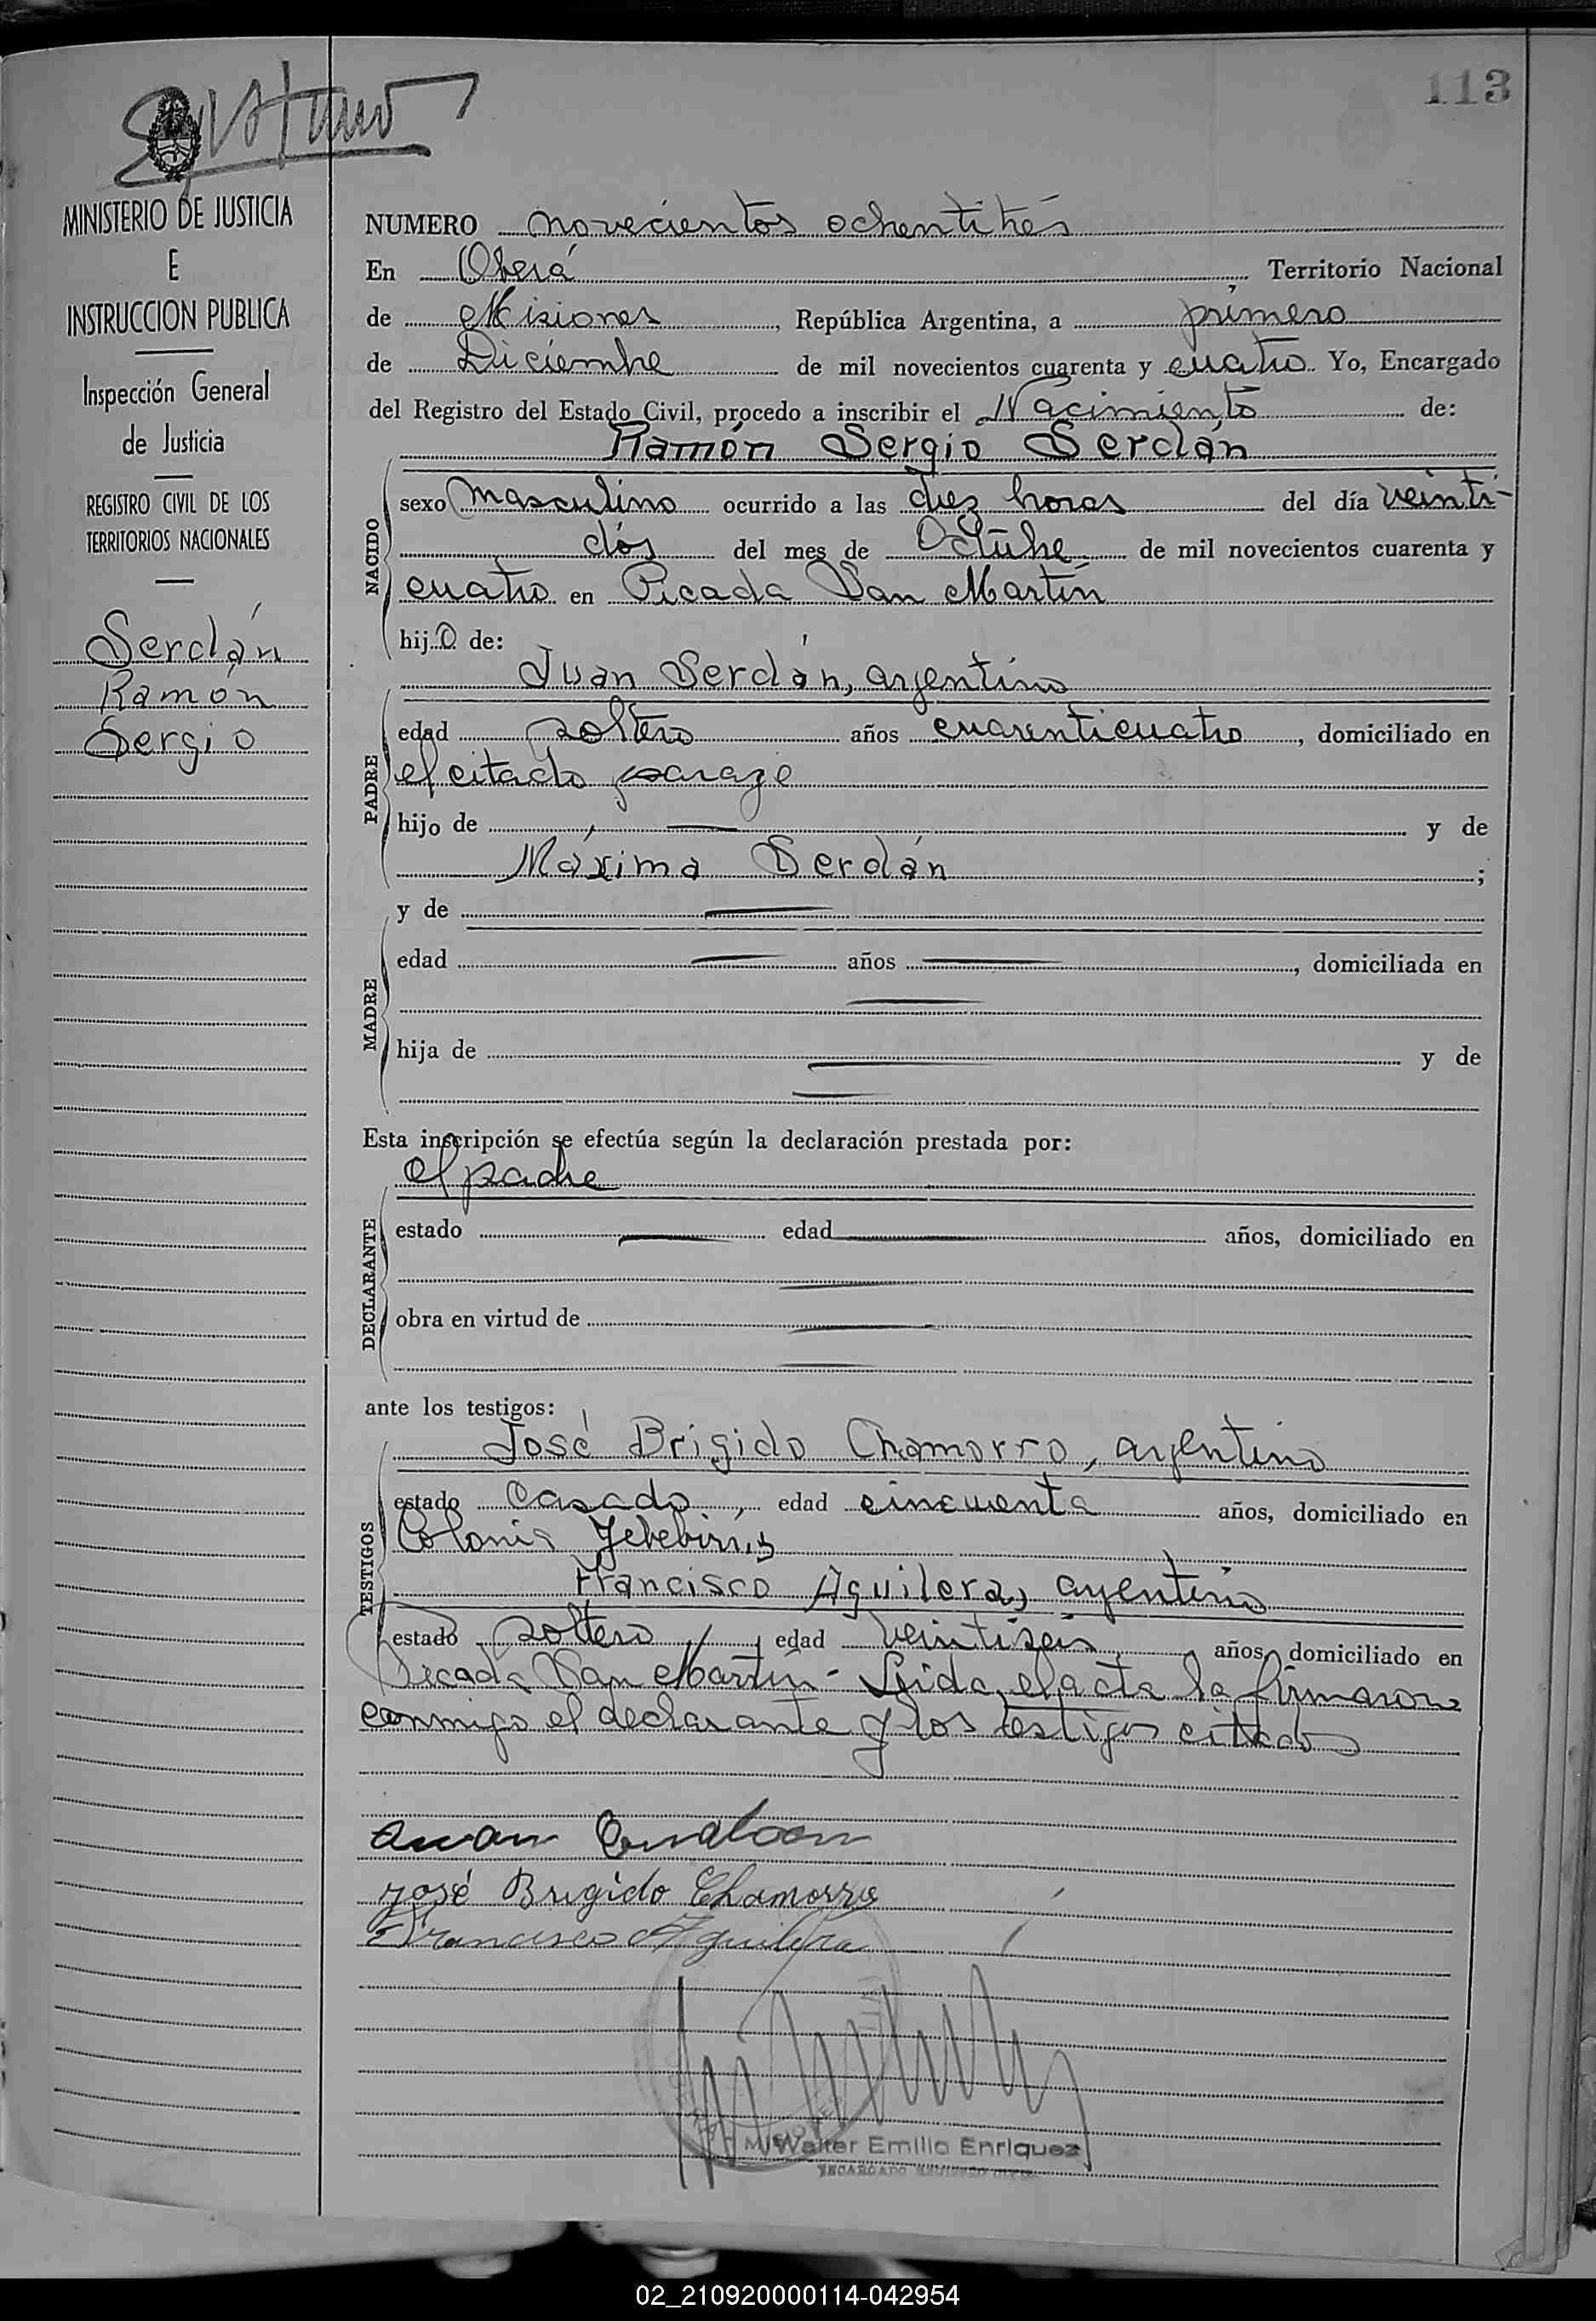 113
MINISTERIO DE JUSTICIA
E
INSTRUCCION PUBLICA
Inspección General
de Justicia
REGISTRO CIVIL DE LOS
TERRITORIOS NACIONALES
Serdán
Ramón
Sergio
NUMERO novecientos ochentitrés
En Oberá Territorio Nacional
de Misiones, República Argentina, a primero
de Diciembre de mil novecientos cuarenta y cuatro Yo, Encargado
del Registro del Estado Civil, procedo a inscribir el Nacimiento de:
Ramón Sergio Serdán
NACIDO
sexo masculino ocurrido a las diez horas del día veinti-
dós del mes de Octubre de mil novecientos cuarenta y
cuatro en Picada San Martín
hijo de:
Juan Serdán, argentino
PADRE
edad soltero años cuarenticuatro, domiciliado en
el citado paraje
hijo de — y de
Máxima Serdán;
y de —
MADRE
edad — años —, domiciliada en
—
hija de — y de
—
Esta inscripción se efectúa según la declaración prestada por:
el padre
DECLARANTE
estado — edad — años, domiciliado en
—
obra en virtud de —
—
ante los testigos:
José Brigido Chamorro, argentino
TESTIGOS
estado casado, edad cincuenta años, domiciliado en
Colonia
Francisco Aguilera, argentino
estado soltero, edad veintiseis años, domiciliado en
Picada San Martín - Leida el acta la firmaron
conmigo el declarante y los testigos citados
José Brigido Chamorro
Francisco Aguilera
Walter Emilio Enriquez
ENCARGADO REGISTRO CIVIL
02_210920000114-042954